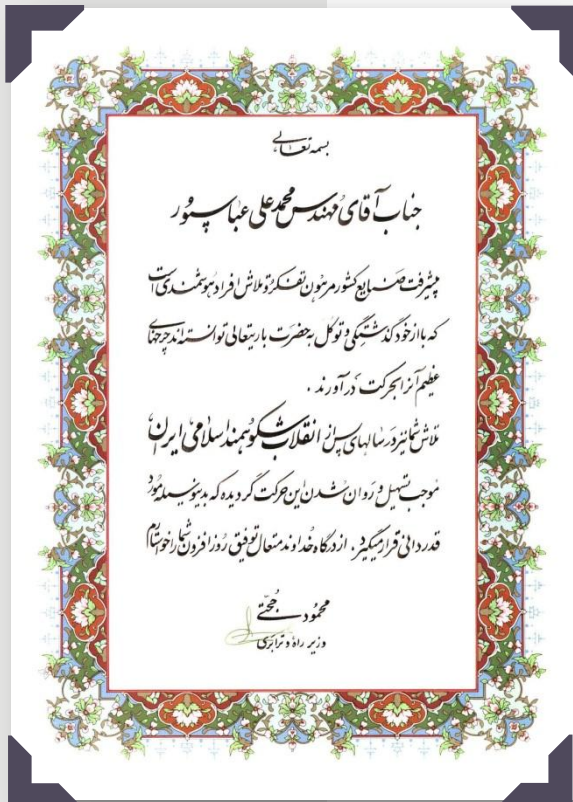 بسمه تعالی
جناب آقای مهندس محمد علی عباسپور
پیشرفت صنایع کشور مرهون تفکر و تلاش افراد هوشمندی است
که با از خود گذشتگی و توکل به حضرت باریتعالی توانسته اند چرخهای
عظیم آنرا بحرکت درآورند .
تلاش شما نیز در سالهای پس از انقلاب شکوهمند اسلامی ایران
موجب تسهیل و روان شدن این حرکت گردیده که بدینوسیله مورد
قدردانی قرار میگیرد . از درگاه خداوند متعال توفیق روزافزون شما را خواستارم
محمود حجتی
وزیر راه و ترابری